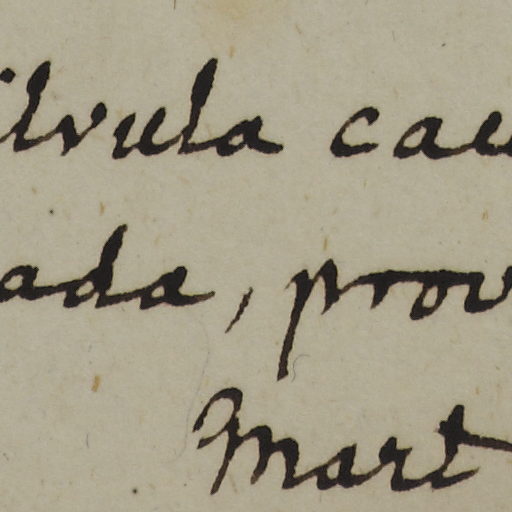 ilvula cau
ada, prov
Mart